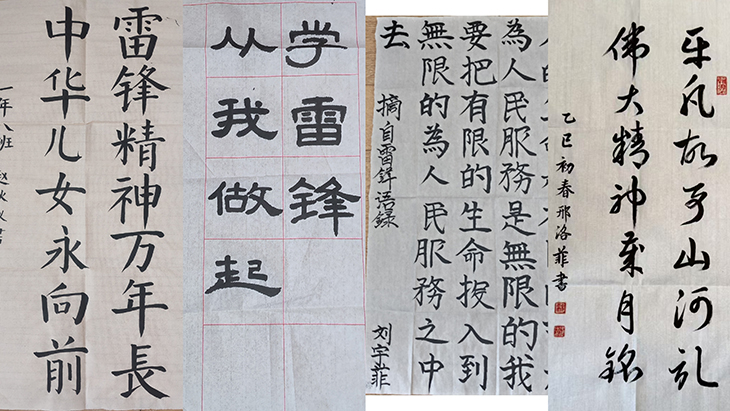 雷锋精神万年長
中华儿女永向前
一年八班
学雷锋
从我做起
為人民服務是無限的我
要把有限的生命投入到
無限的為人民服務之中
去
摘自雷锋语録
刘宇菲
平凡故事山河记
伟大精神岁月铭
乙巳初春邢洛菲書